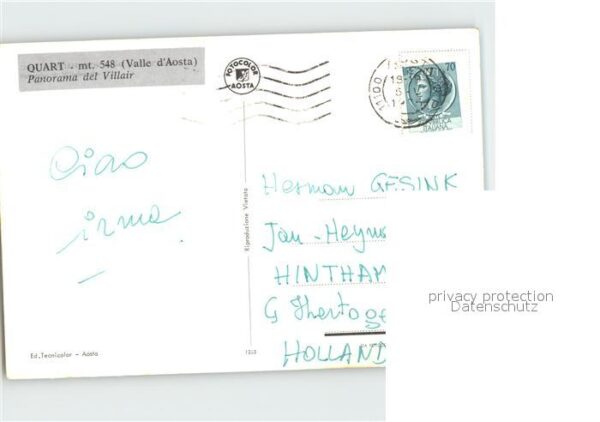 QUART - mt. 548 (Valle d'Aosta)
Panorama del Villair
FOTOCOLOR
AOSTA
11100
70
ITALIANA
Ciao
irma
Riproduzione Vietata
Herman GESINK
Jan-Heyns
HINTHAM
S Hertoge
HOLLAND
Ed. Tecnicolor - Aosta
privacy protection
Datenschutz